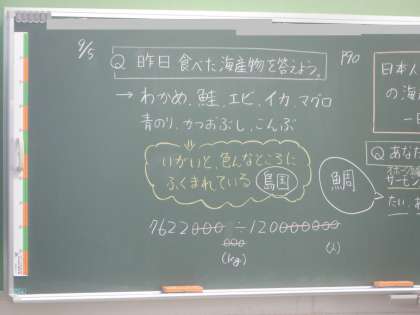 9/5
Q 昨日 食べた海産物を答えよう。
→ わかめ、鮭、エビ、イカ、マグロ
青のり、かつおぶし、こんぶ
いがいと、色んなところに
ふくまれている
島国
7622000 ÷ 120000000
000
(kg)
(人)
P90
日本人
の海
一日
Q あなた
サーモン
鯛
たい、